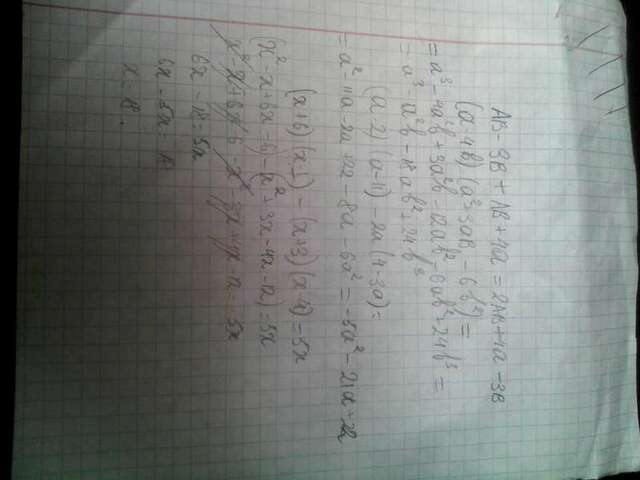 AB - 3B + AB + 4a = 2AB + 4a - 3B
(a - 4b)(a² + 3ab - 6b²) =
= a³ - 4a²b + 3a²b - 12ab² - 6ab² + 24b³ =
= a³ - a²b - 18ab² + 24b³
(a - 2)(a - 11) - 2a(4 - 3a) =
= a² - 11a - 2a + 22 - 8a - 6a² = -5a² - 21a + 22
(x+6)(x-1) - (x+3)(x-4) = 5x
(x² - x + 6x - 6) - x² + 3x - 4x - 12) = 5x
x² - x + 6x - 6 - x² - 3x + 4x - 12 = 5x
6x - 18 = 5x
6x - 5x = 18
x = 18.